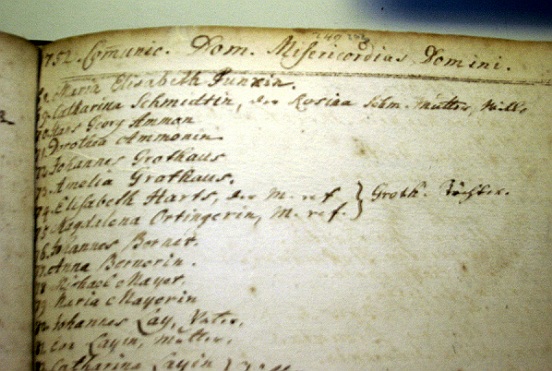 1752. Comunic. Dom. Misericordias Domini.
Maria Elisabeth Funkin.
Catharina Schmidtin, der Rosina Schm. Mutter,
70. Hans Georg Ammon
71. Dorothea Ammonin
72. Johannes Grothaus
73. Amelia Grothaus.
74. Elisabeth Harts, der M. ref } Groth. Töchter.
75. Magdalena Ortingerin, M. ref.
76. Johannes Borner.
77. Anna Bornerin.
78. Michael Mayer.
79. Maria Mayerin
Johannes Lay, Vater.
Layin, Mutter.
Catharina Layin